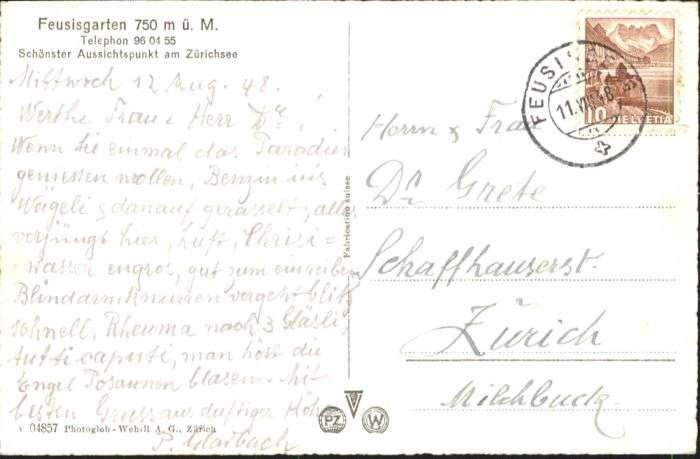 Feusisgarten 750 m ü. M.
Telephon 96 04 55
Schönster Aussichtspunkt am Zürichsee
Mittwoch 12 Aug. 48.
Werthe Frau & Herr Dr.,
Wenn Sie einmal das Paradies
geniessen wollen, Benzin ins
Wägeli & danauf gerasselt, alles
verjüngt hier, Luft, Chriesi-
wasser engros, gut zum einreiben
Blindarmknurren vergeht blitz
schnell, Rheuma nach 3 Gläsli,
tutti caputi, man hört die
Engel Posaunen blasen. Mit
besten Gruss aus duftiger Höhe
P.
v 04857 Photoglob-Wehrli A. G., Zürich
Fabrication suisse
PZ
W
FEUSISGARTEN
11.VIII.48
10
HELVETIA
Herrn & Frau
Dr. Grete
Schaffhauserst.
Zürich
Milchbuck.